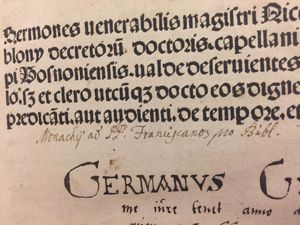 Sermones venerabilis magistri Nic
blony decretorū doctoris. capellani
pi Posnoniensis. valde deseruientes
lo: sz et clero vtcūqz docto eos digne
predicāti. aut audienti. de tempore. et
Monachij ad PP. Franciscanos pro Bibl.
GERMANVS G
me iure tenet anno